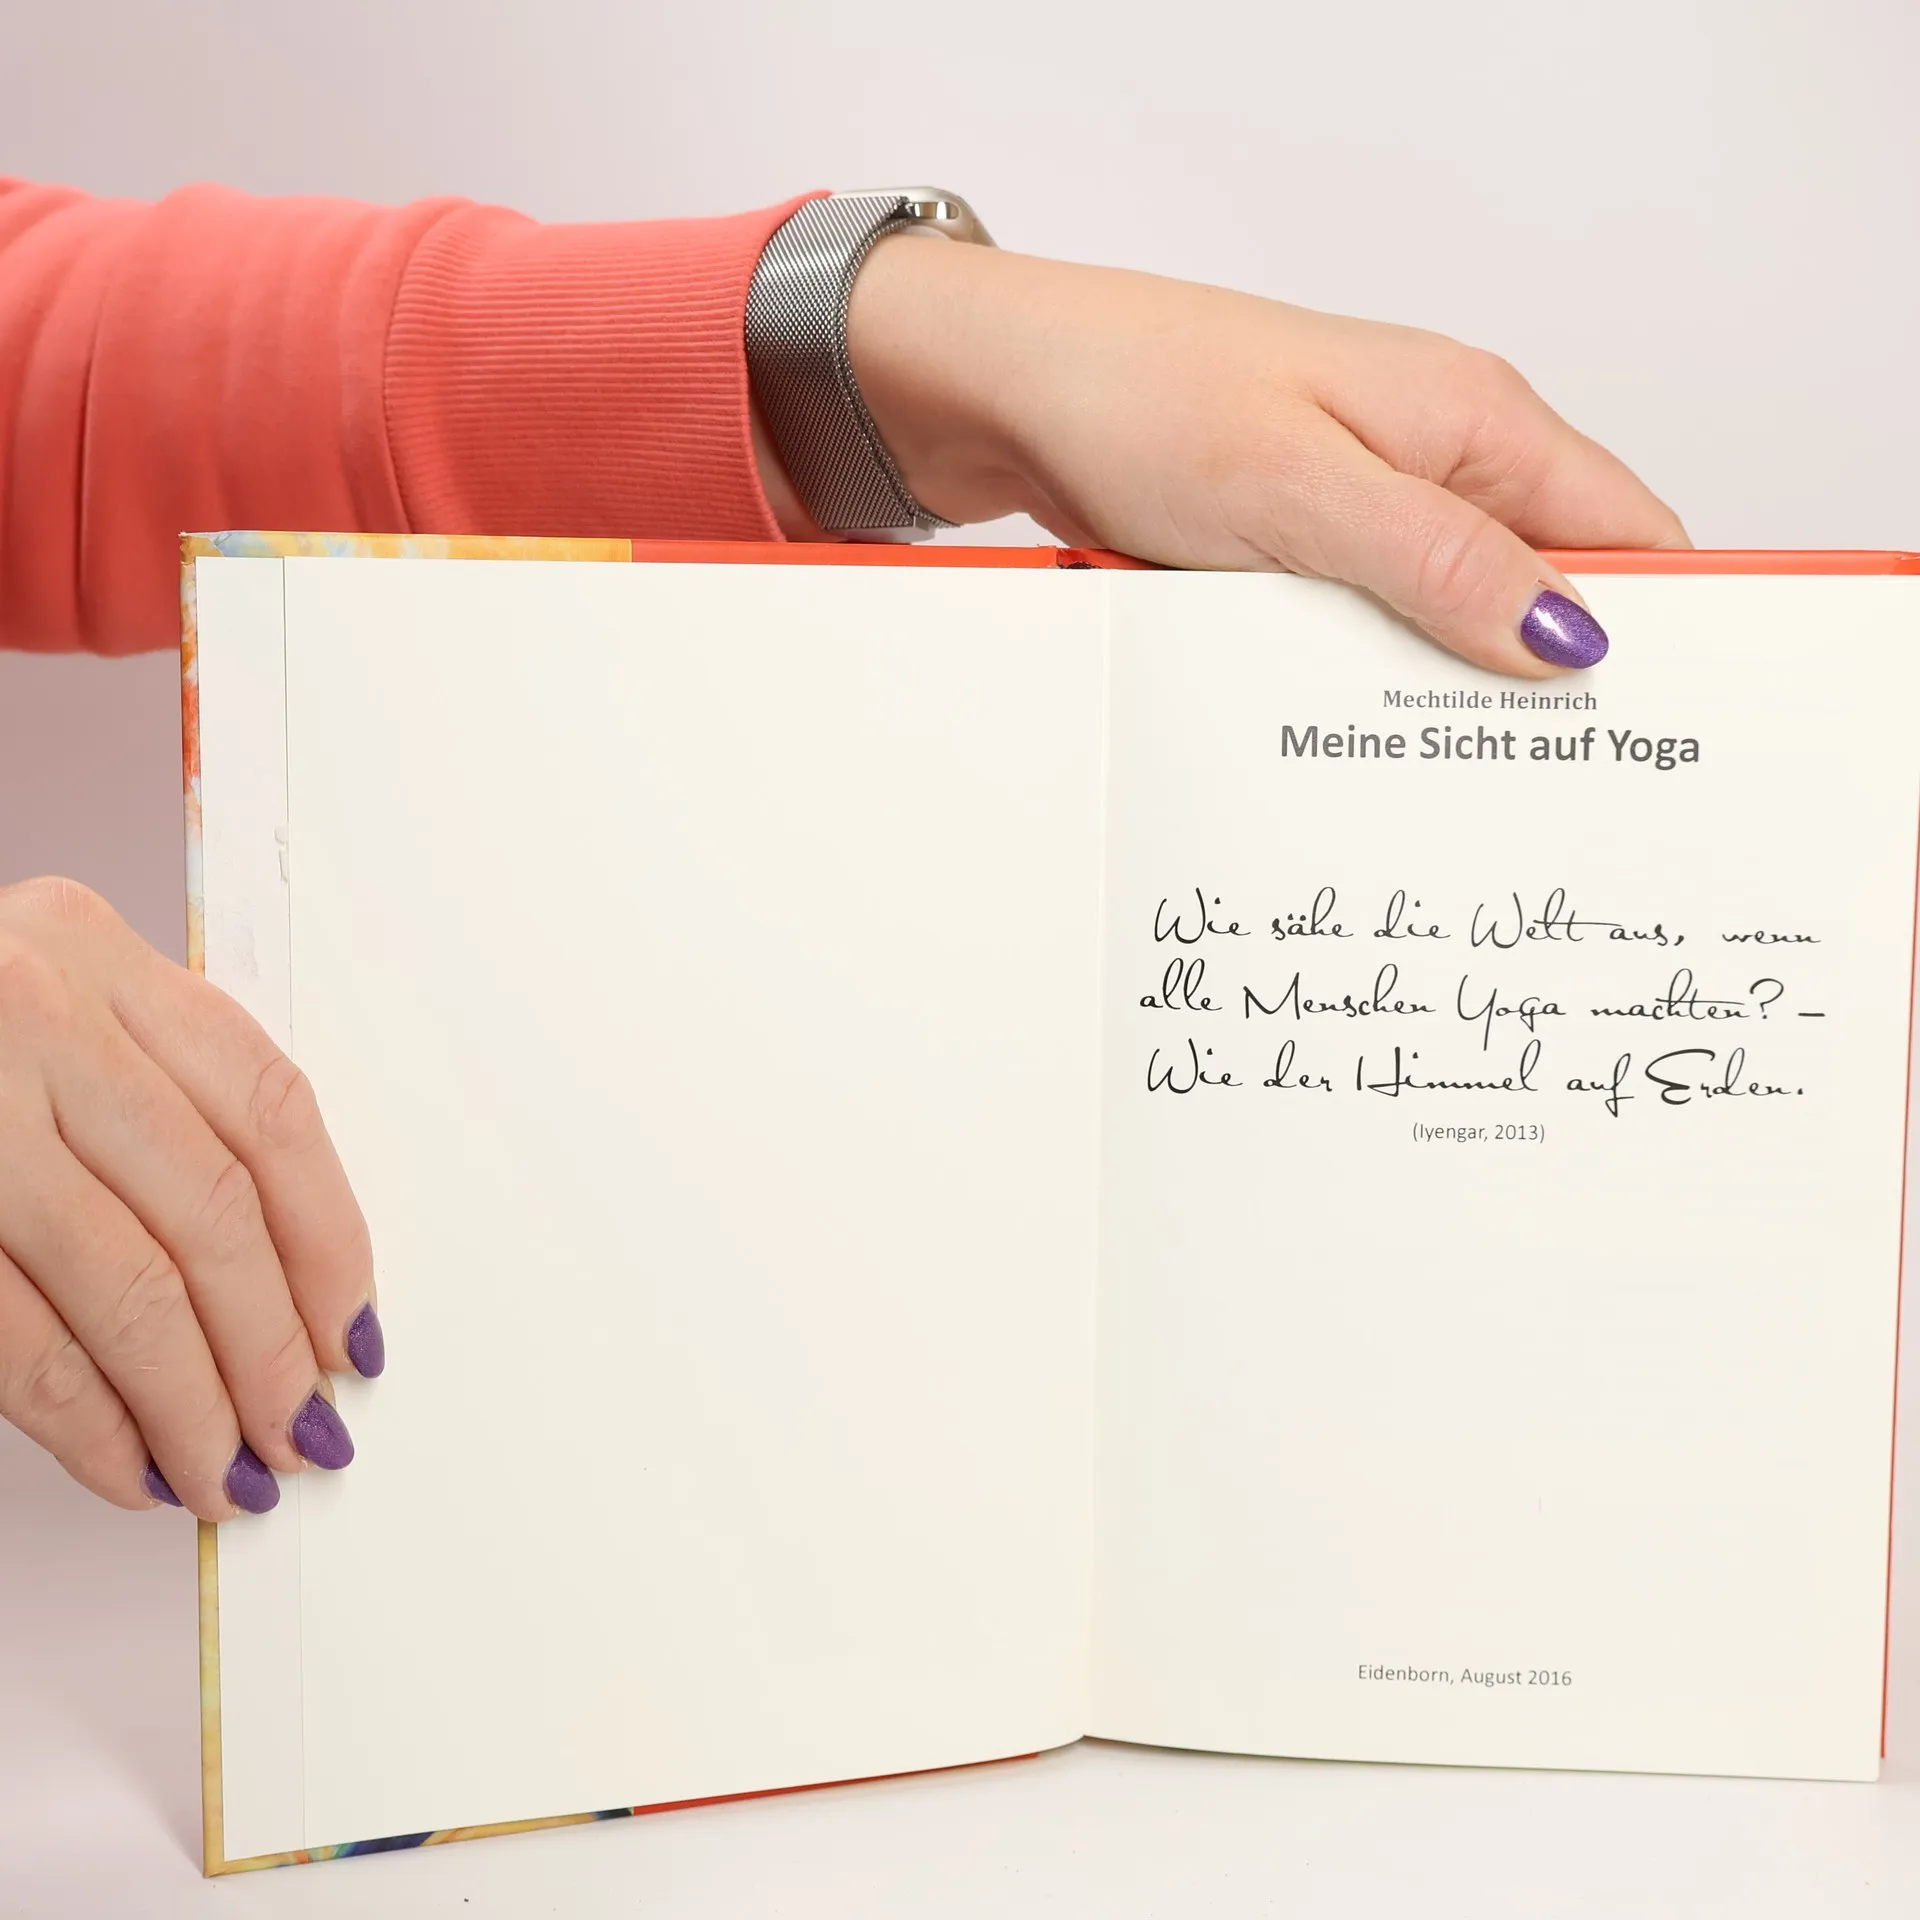 Mechtilde Heinrich
Meine Sicht auf Yoga
Wie sähe die Welt aus, wenn
alle Menschen Yoga machten? –
Wie der Himmel auf Erden.
(Iyengar, 2013)
Eidenborn, August 2016